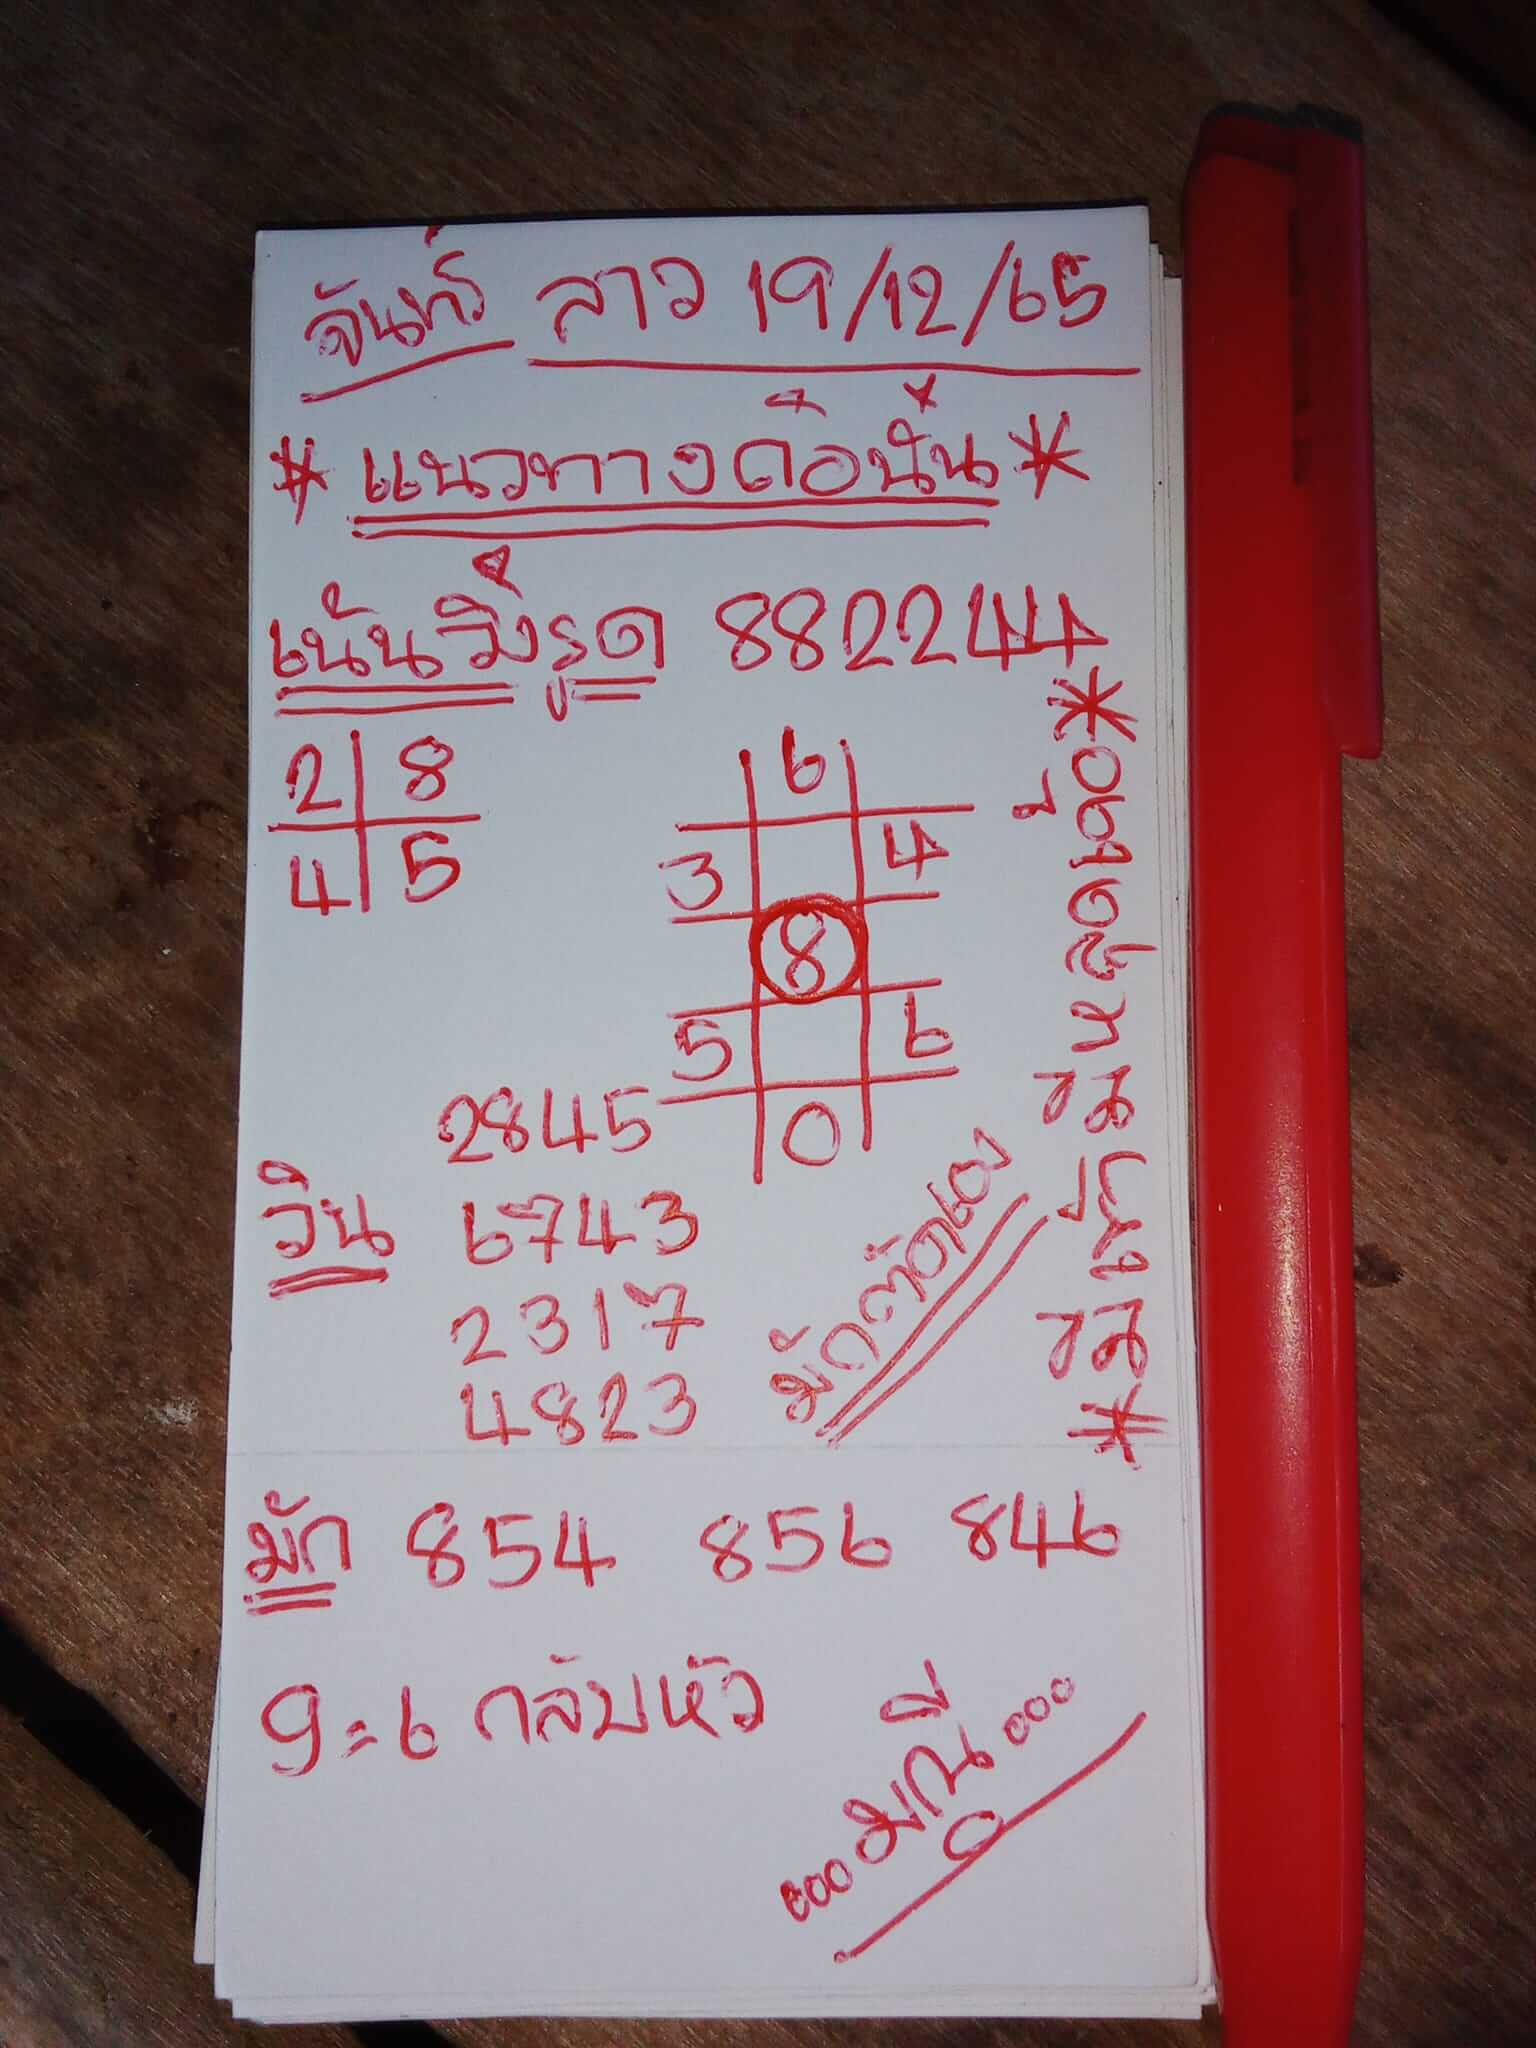 จันทร์ ลาว 19/12/65
* แนวทางคือนั้น *
เน้นวิ่งรูด 882244
2 8
4 5
6
3 4
8
5 6
0
*มีเข้ามีหลุดเด้อ*
2845
วิน 6743
2317
4823
มักตัดเอง
มัก 854 856 846
9=6 กลับหัว
...มณี...